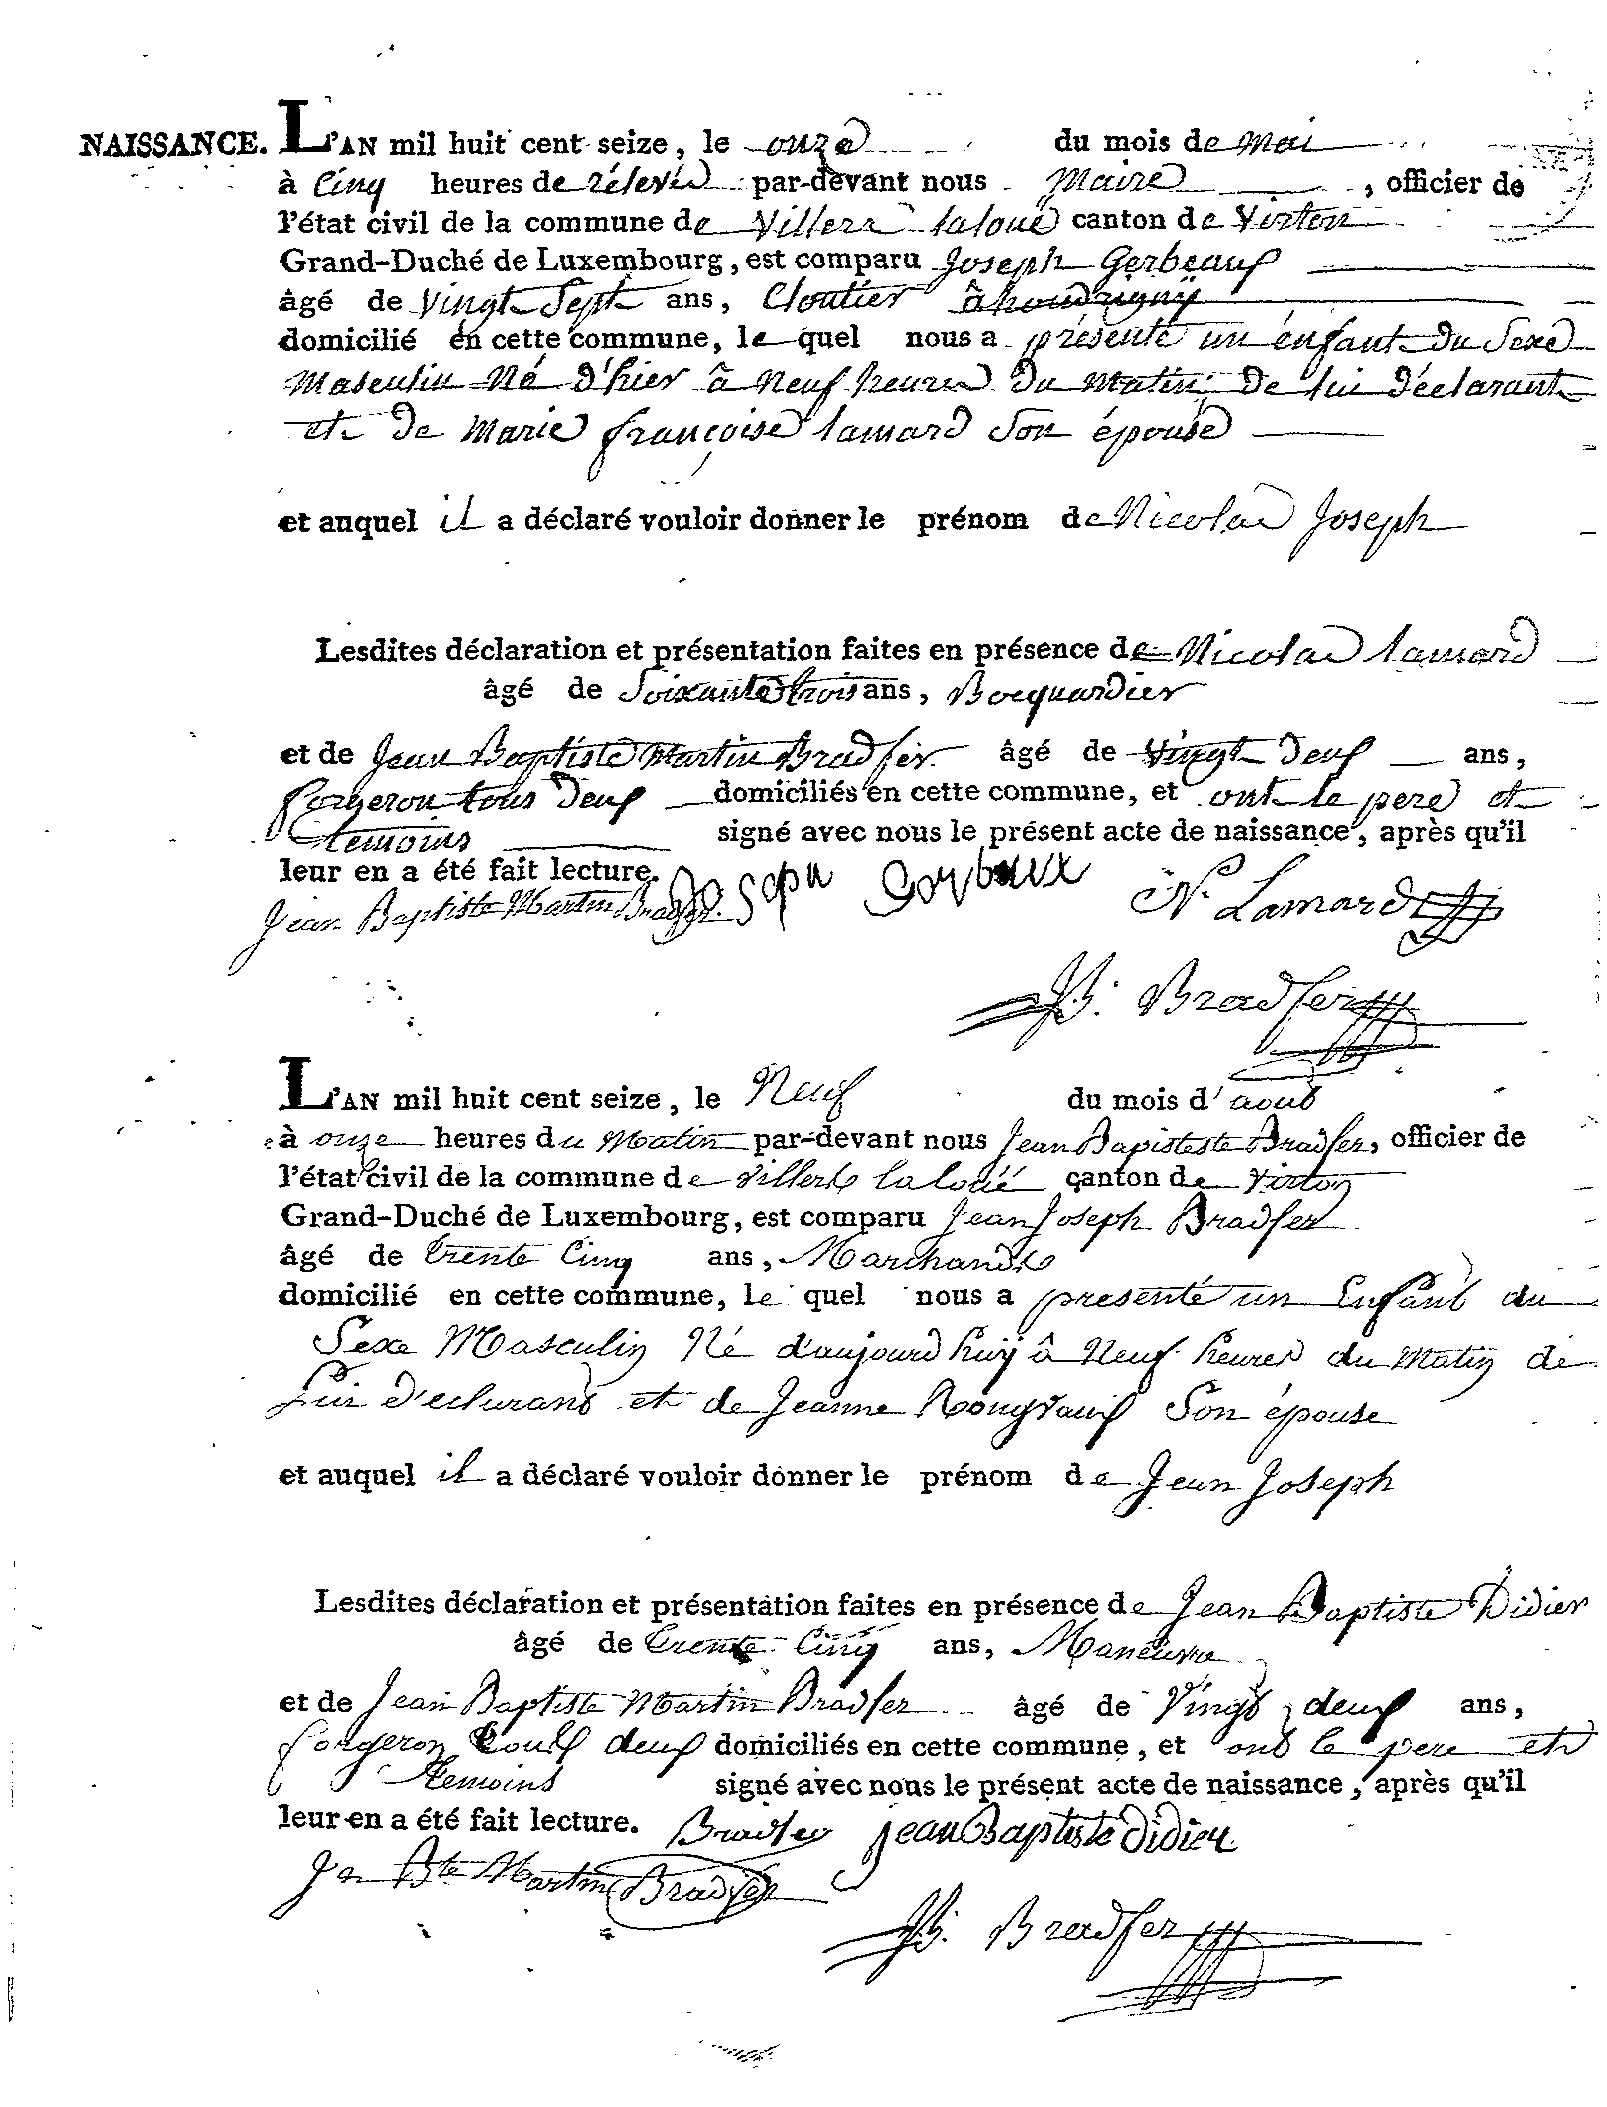 NAISSANCE. L'AN mil huit cent seize, le onze du mois de mai
à Cinq heures de rélevée par-devant nous Maire, officier de
l'état civil de la commune de Villers laloue canton de Virton
Grand-Duché de Luxembourg, est comparu Joseph Gerbeaux
âgé de vingt Sept ans, Cloutier à houdrigny
domicilié en cette commune, le quel nous a présenté un énfant du Sexe
Masculin Né d'hier à Neuf heures du Matin, de lui déclarant
et de Marie françoise lamard Son épouse
et auquel il a déclaré vouloir donner le prénom de Nicolas Joseph
Lesdites déclaration et présentation faites en présence de Nicolas lamard
âgé de Soixante trois ans, Bocquardier
et de Jean Baptiste Martin Bradfer âgé de Vingt deux ans,
forgeron tous deux domiciliés en cette commune, et ont le pere et
temoins signé avec nous le présent acte de naissance, après qu'il
leur en a été fait lecture. Joseph Gorbaux N. Lamard
Jean Baptiste Martin Bradfer
JB. Bradfer
L'AN mil huit cent seize, le Neuf du mois d'aout
à onze heures du Matin par-devant nous Jean Bapisteste Bradfer, officier de
l'état civil de la commune de villers laloué canton de Virton
Grand-Duché de Luxembourg, est comparu Jean Joseph Bradfer
âgé de trente Cinq ans, Marchands
domicilié en cette commune, le quel nous a presenté un Enfant du
Sexe Masculin Né d'aujourd huÿ à Neuf heures du Matin de
Lui d'eclarant et de Jeanne Rongvaux Son épouse
et auquel il a déclaré vouloir donner le prénom de Jean Joseph
Lesdites déclaration et présentation faites en présence de Jean Baptiste Didier
âgé de trente Cinq ans, Maneuvre
et de Jean Baptiste Martin Bradfer âgé de Vingt deux ans,
forgeron tous deux domiciliés en cette commune, et ont le pere et
temoins signé avec nous le présent acte de naissance, après qu'il
leur en a été fait lecture. Bradfer jean Baptiste didier
Jn Bte Martin Bradfer
JB. Bradfer